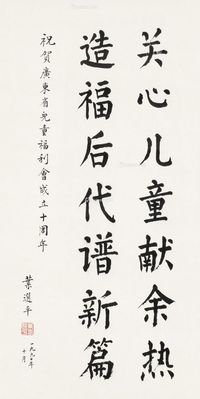 关心儿童献余热
造福后代谱新篇
祝贺廣東省兒童福利會成立十周年
葉選平
一九九一年
十月